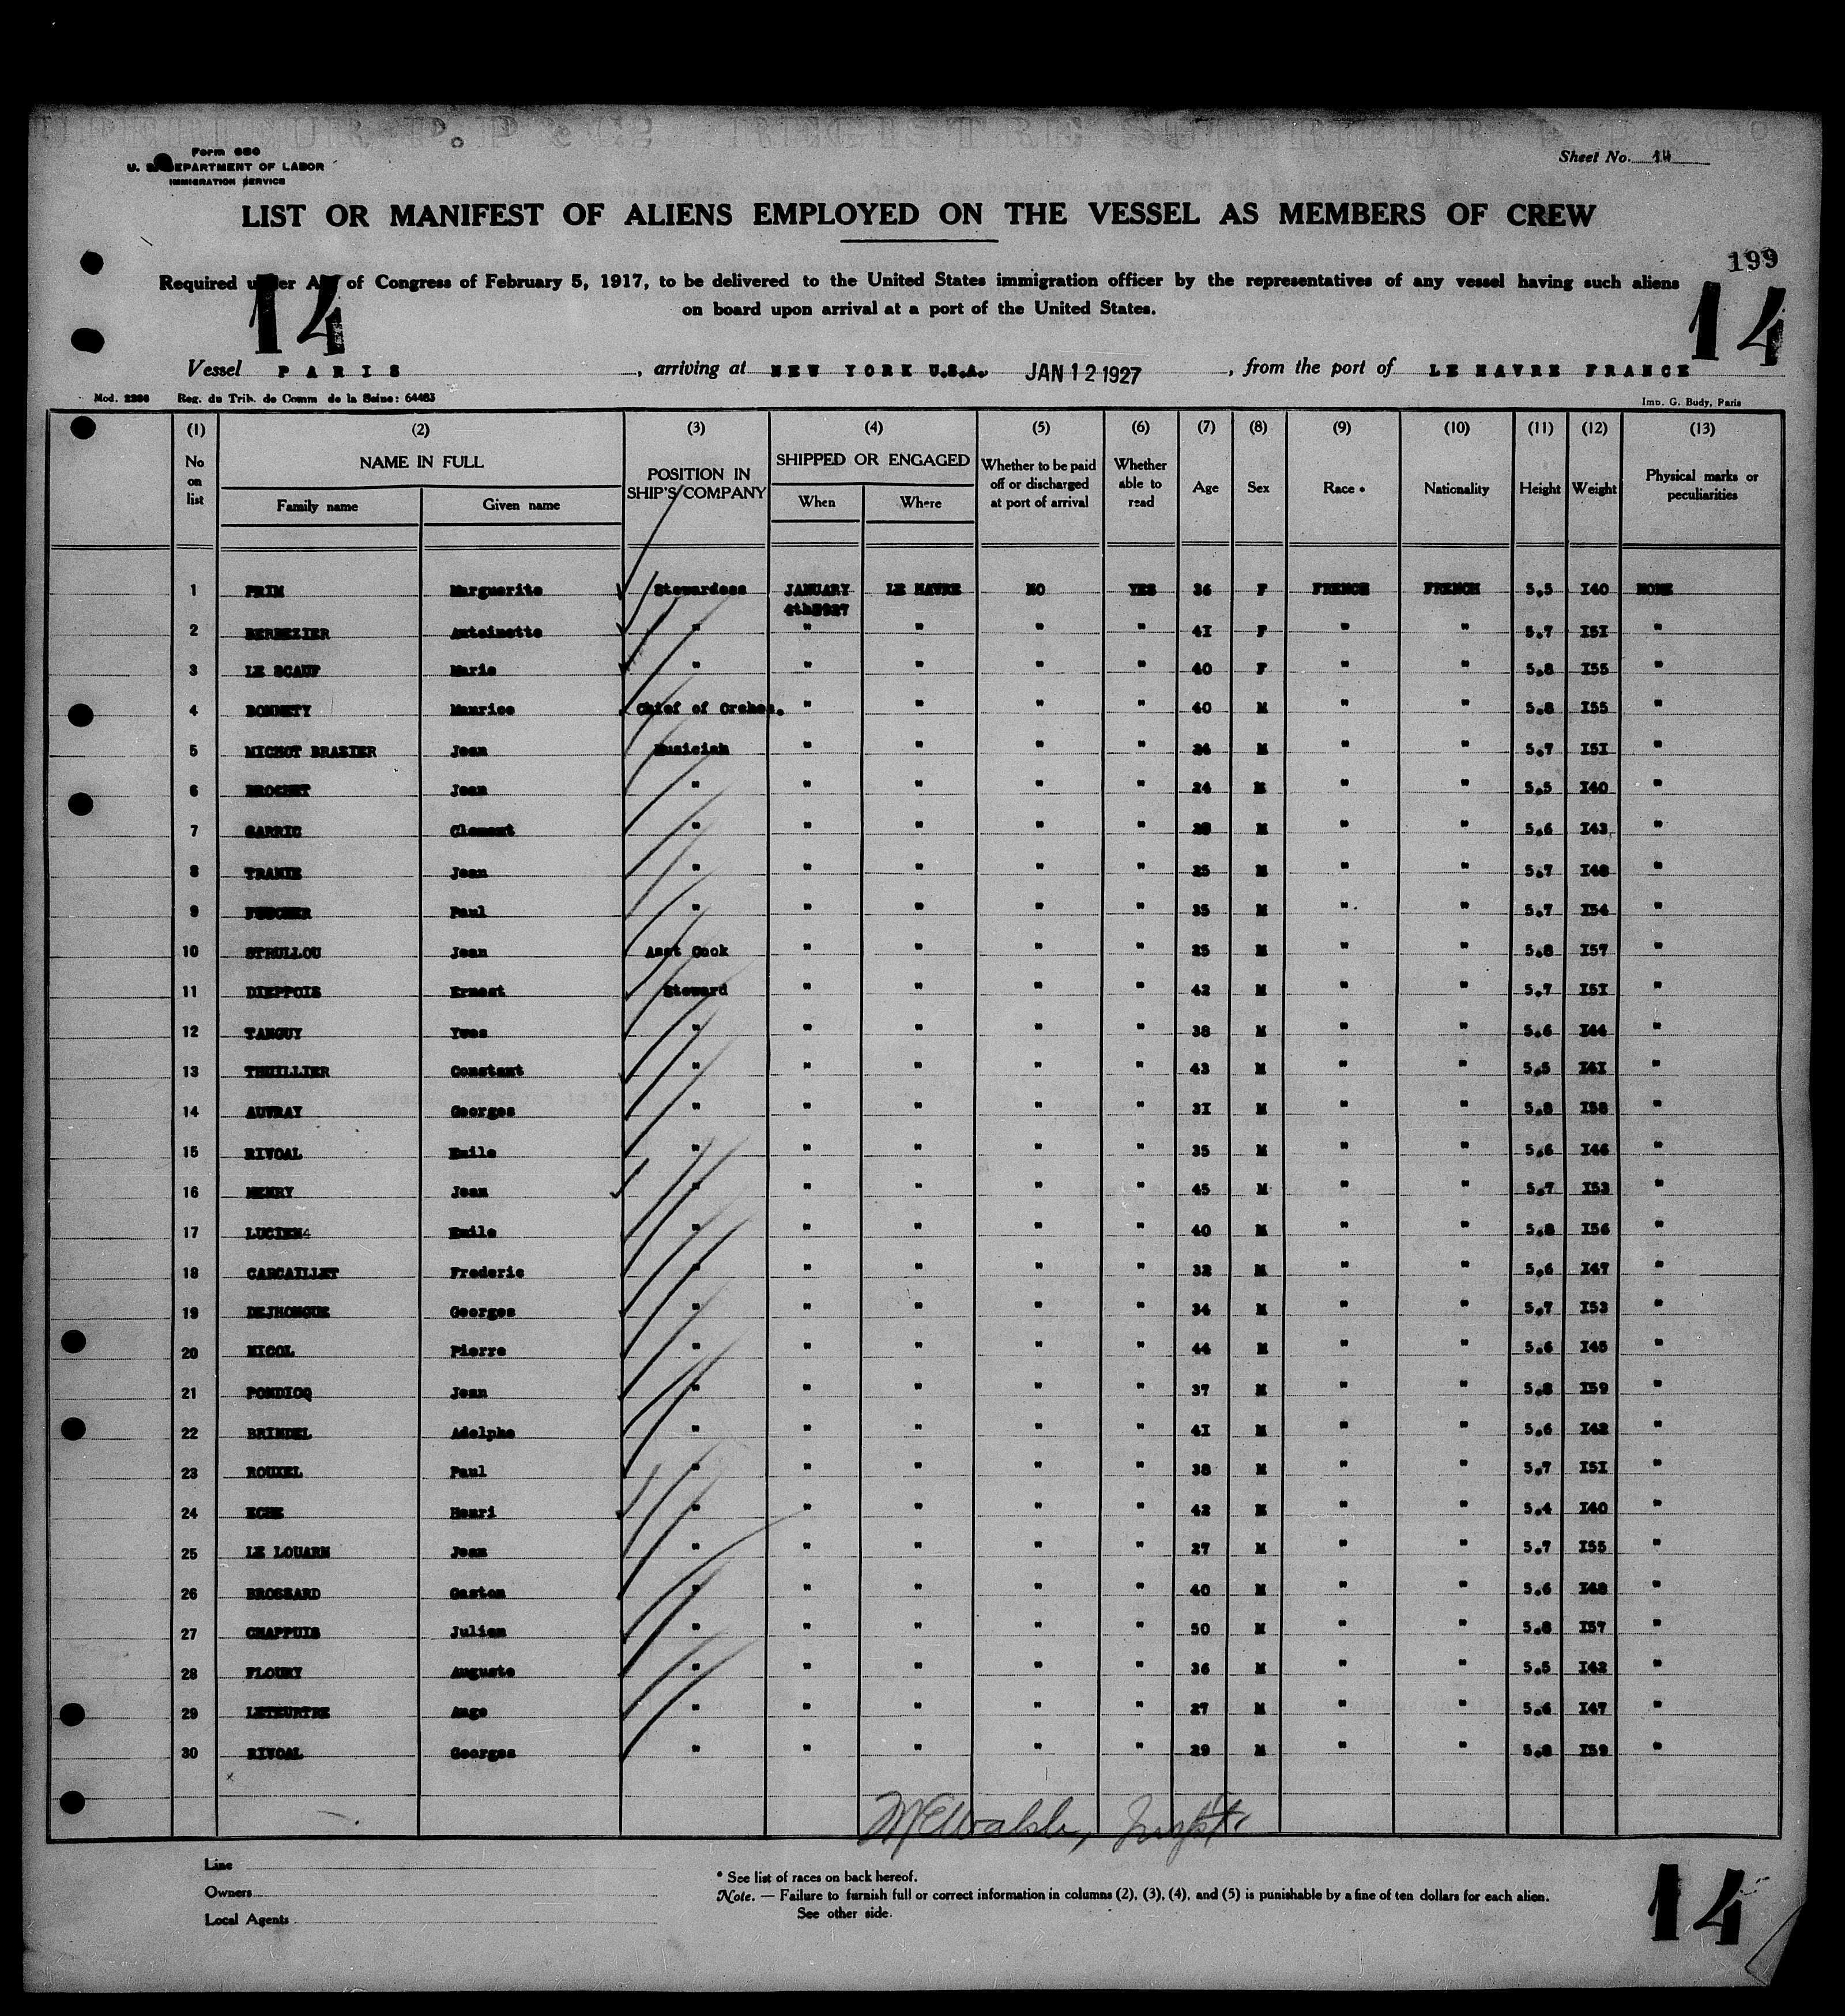 Form 680
U. S. DEPARTMENT OF LABOR
IMMIGRATION SERVICE
Sheet No. 14
LIST OR MANIFEST OF ALIENS EMPLOYED ON THE VESSEL AS MEMBERS OF CREW
199
Required under Act of Congress of February 5, 1917, to be delivered to the United States immigration officer by the representatives of any vessel having such aliens
on board upon arrival at a port of the United States.
14 14
Vessel PARIS, arriving at NEW YORK U.S.A. JAN 12 1927, from the port of LE HAVRE FRANCE
Mod. 2266 Reg. du Trib. de Comm de la Seine: 64483 Imp. G. Budy, Paris
(1) (2) (3) (4) (5) (6) (7) (8) (9) (10) (11) (12) (13)
No on list NAME IN FULL Family name Given name POSITION IN SHIP'S COMPANY SHIPPED OR ENGAGED When Where Whether to be paid off or discharged at port of arrival Whether able to read Age Sex Race * Nationality Height Weight Physical marks or peculiarities
1 PRIM Marguerite Stewardess JANUARY 4th 1927 LE HAVRE NO YES 36 F FRENCH FRENCH 5,5 I40 NONE
2 BERBEZIER Antoinette " " " " " 4I F " " 5,7 I5I "
3 LE SCAUF Marie " " " " " 40 F " " 5,8 I55 "
4 BONNETY Maurice Chief of Orches. " " " " 40 M " " 5,8 I55 "
5 MICHOT BRAZIER Jean Musician " " " " 24 M " " 5,7 I5I "
6 BROCHET Jean " " " " " 24 M " " 5,5 I40 "
7 GARRIC Clement " " " " " M " " 5,6 I43 "
8 TRANIE Jean " " " " " 25 M " " 5,7 I48 "
9 Paul " " " " " 35 M " " 5,7 I54 "
10 STRULLOU Jean Asst Cook " " " " 25 M " " 5,8 I57 "
11 DIEPPOIS Ernest Steward " " " " 42 M " " 5,7 I5I "
12 TANGUY Yves " " " " " 38 M " " 5,6 I44 "
13 THUILLIER Constant " " " " " 43 M " " 5,5 I4I "
14 AUVRAY Georges " " " " " 3I M " " 5,8 I58 "
15 RIVOAL Emile " " " " " 35 M " " 5,6 I46 "
16 HENRY Jean " " " " " 45 M " " 5,7 I53 "
17 LUCIEN Emile " " " " " 40 M " " 5,8 I56 "
18 CARCAILLET Frederic " " " " " 32 M " " 5,6 I47 "
19 DEJHONGUE Georges " " " " " 34 M " " 5,7 I53 "
20 NICOL Pierre " " " " " 44 M " " 5,6 I45 "
21 PONDICQ Jean " " " " " 37 M " " 5,8 I59 "
22 BRINDEL Adolphe " " " " " 4I M " " 5,6 I42 "
23 ROUXEL Paul " " " " " 38 M " " 5,7 I5I "
24 ECHE Henri " " " " " 42 M " " 5,4 I40 "
25 LE LOUARN Jean " " " " " 27 M " " 5,7 I55 "
26 BROSSARD Gaston " " " " " 40 M " " 5,6 I48 "
27 CHAPPUIS Julien " " " " " 50 M " " 5,8 I57 "
28 FLOURY Auguste " " " " " 36 M " " 5,5 I42 "
29 LETEURTRE Ange " " " " " 27 M " " 5,6 I47 "
30 RIVOAL Georges " " " " " 29 M " " 5,8 I59 "
Line
Owners
Local Agents
* See list of races on back hereof.
Note. — Failure to furnish full or correct information in columns (2), (3), (4), and (5) is punishable by a fine of ten dollars for each alien.
See other side.
14